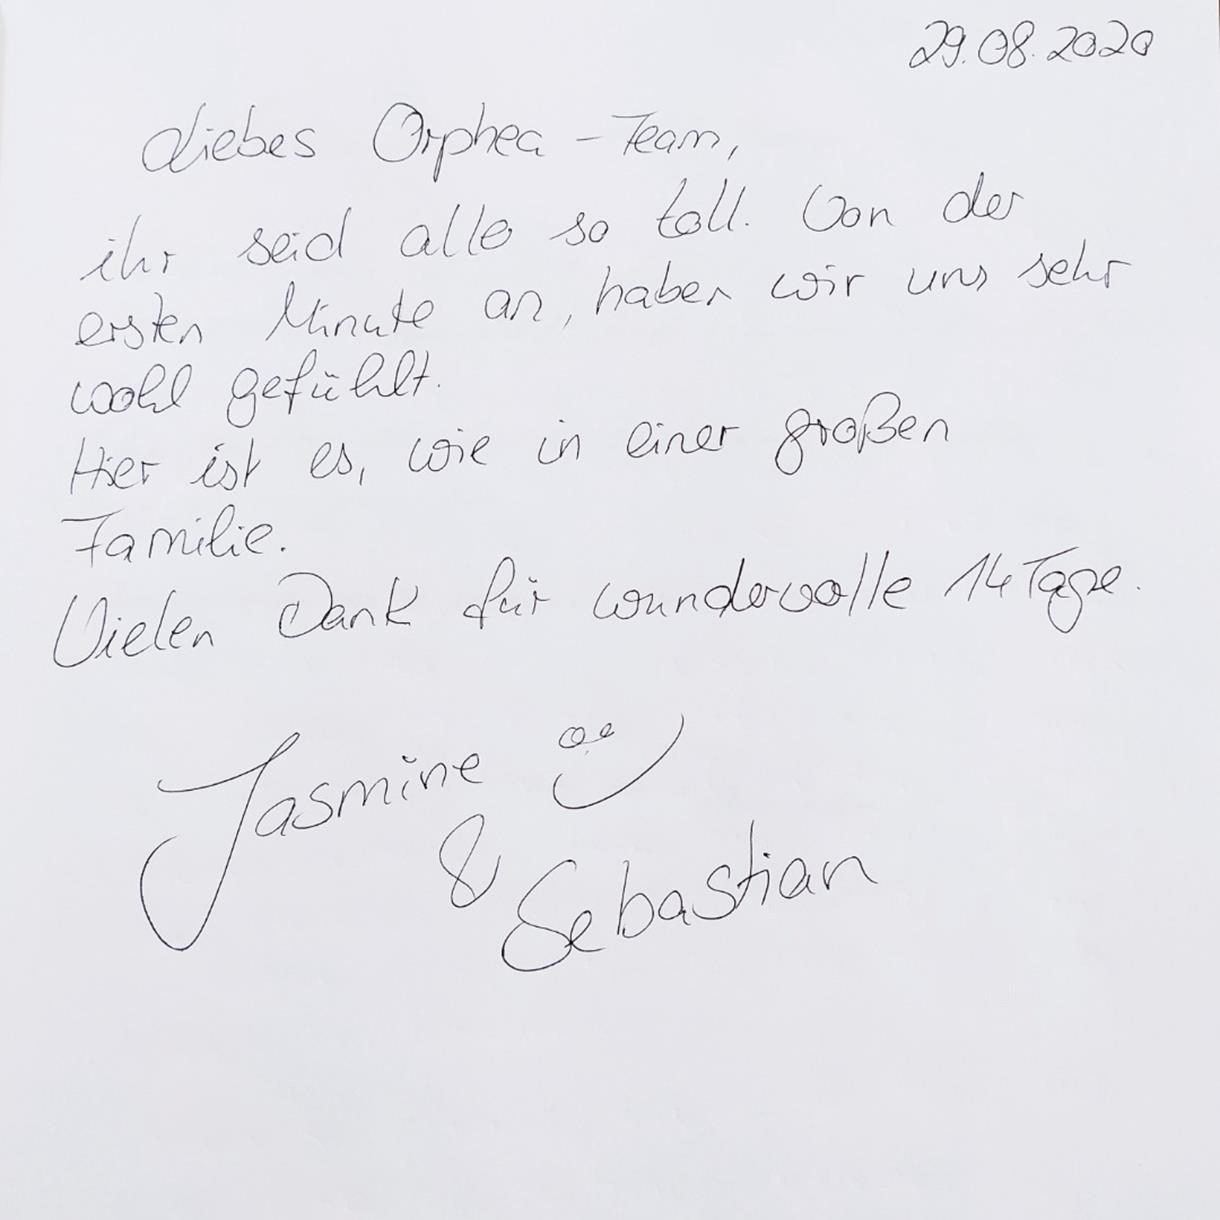 29.08.2020
Liebes Orphea-Team,
ihr seid alle so toll. Von der
ersten Minute an, haben wir uns sehr
wohl gefühlt.
Hier ist es, wie in einer großen
Familie.
Vielen Dank für wundervolle 14 Tage.
Jasmine
&
Sebastian